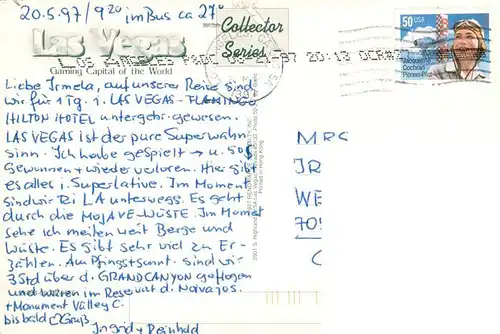 20.5.97/9²⁰ im Bus ca 27°
Las Vegas
Gaming Capital of the World
Collector
Series
LOS ANGELES P&DC 05-21-97 20:13 OCR#
50 USA
Jacqueline
Cochran
Pioneer Pilot
Liebe Irmela, auf unserer Reise sind
wir für 1 Tg. i. LAS VEGAS - FLAMINGO
HILTON HOTEL untergebr. gewesen.
LAS VEGAS ist der pure Superwahn
sinn. Ich habe gespielt → u. 50$
gewonnen + wieder verloren. Hier gibt
es alles i. Superlative. Im Moment
sind wir Ri LA unterwegs. Es geht
durch die MOJAVE-WÜSTE. Im Moment
sehe ich meilenweit Berge und
Wüste. Es gibt sehr viel zu Er-
zählen. Am Pfingstsonnt. sind wir
3 Std über d. GRAND CANYON geflogen
und waren im Reservat d. Navajos.
+ Monument Valley C.
bis bald Gruß
Ingrid + Reinhold
MRS
IR
WE
705
Printed in Hong Kong